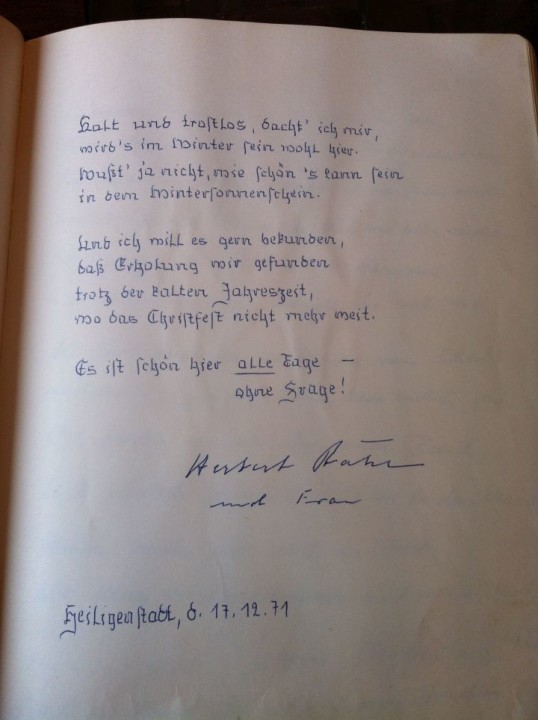 Kalt und trostlos, dacht' ich mir,
wird's im Winter sein wohl hier.
Wußt' ja nicht, wie schön 's kann sein
in dem Wintersonnenschein.
Und ich will es gern bekunden,
daß Erholung wir gefunden
trotz der kalten Jahreszeit,
wo das Christfest nicht mehr weit.
Es ist schön hier alle Tage –
ohne Frage!
Herbert
und Frau
Heiligenstadt, d. 17.12.71